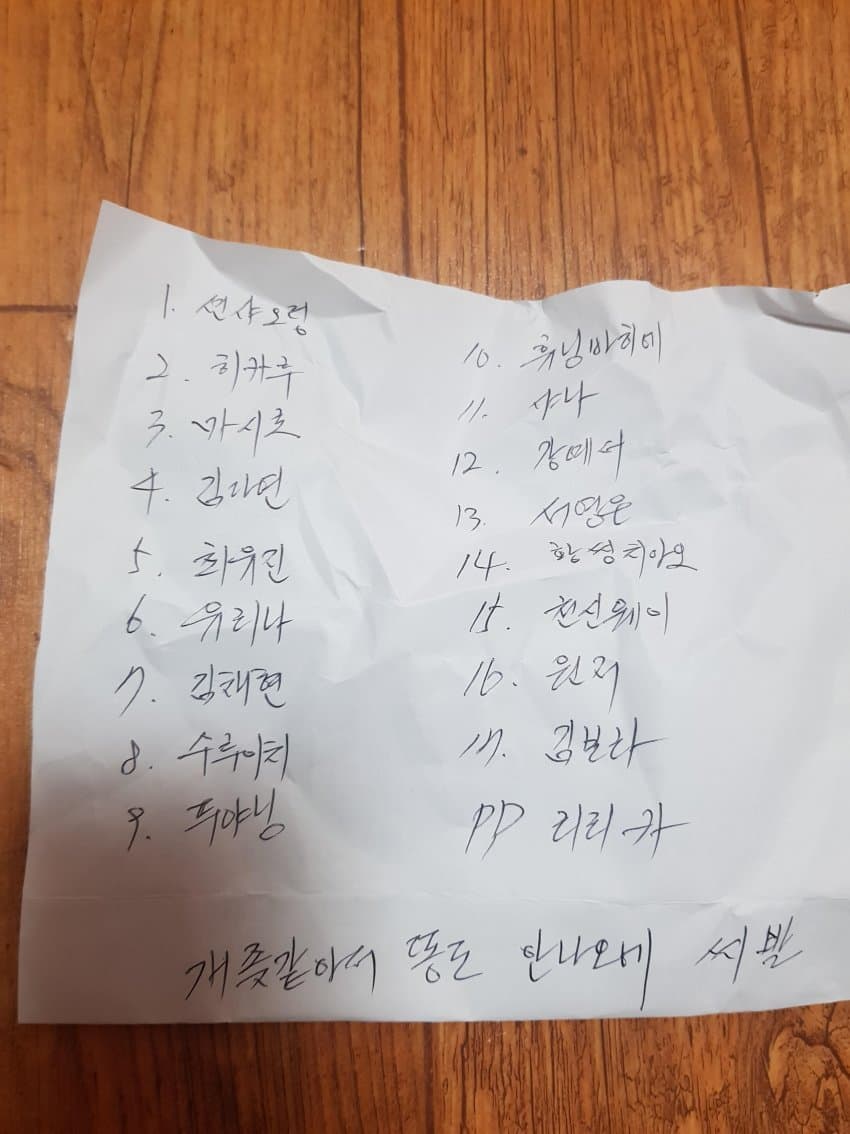 1. 션샤오렁
2. 히카루
3. 마시로
4. 김다연
5. 최유진
6. 유리나
7. 김채현
8. 수루이치
9. 푸야닝
10. 휴닝바히에
11. 샤나
12. 강예서
13. 서영은
14. 황씽치아오
15. 천신웨이
16. 원저
17. 김보라
PP 리리카
개좆같아서 똥도 안나오네 씨빨